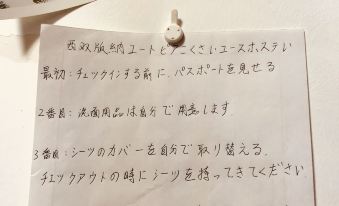 西双版納ユートピアこくさいユースホステい
最初:チェックインする前に.パスポートを見せる
2番目:洗面用品は自分で用意します
3番目:シーツのカバーを自分で取り替える.
チェックアウトの時にシーツを持ってきてください.